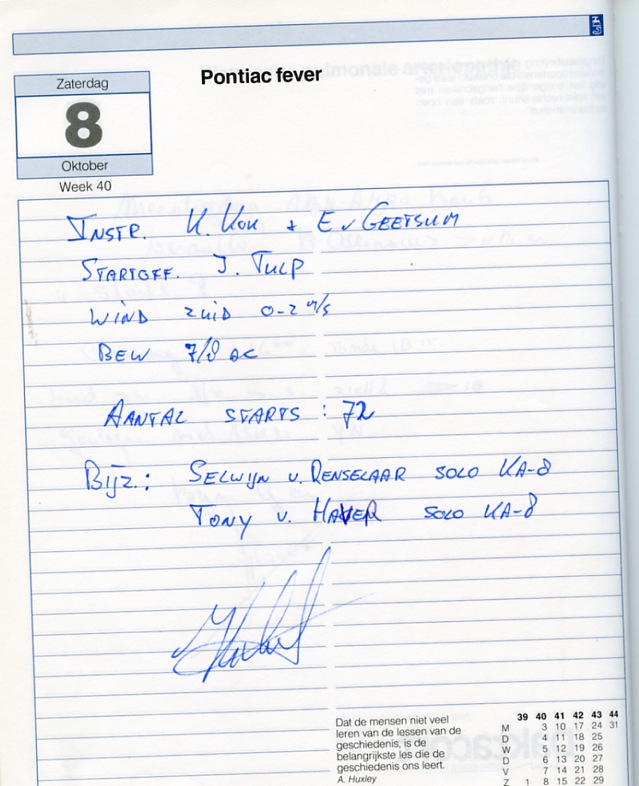 Zaterdag
8
Oktober
Week 40
Pontiac fever
INSTR. K. KOK + E v GEETSUM
STARTOFF. J. TULP
WIND ZUID 0-2 m/s
BEW 7/8 AC
AANTAL STARTS : 72
BIJZ.: SELWIJN v. RENSELAAR SOLO KA-8
TONY v. HAVER SOLO KA-8
Dat de mensen niet veel
leren van de lessen van de
geschiedenis, is de
belangrijkste les die de
geschiedenis ons leert.
A. Huxley
39 40 41 42 43 44
M 3 10 17 24 31
D 4 11 18 25
W 5 12 19 26
D 6 13 20 27
V 7 14 21 28
Z 1 8 15 22 29